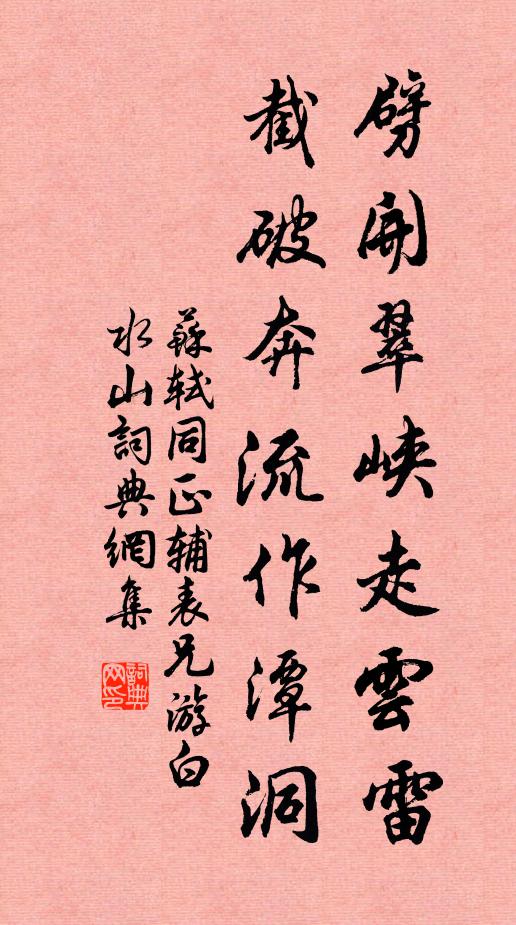 劈開翠峽走雲雷
截破奔流作潭洞
蘇軾同正輔表兄游白
水山詞典網集
詞典网印